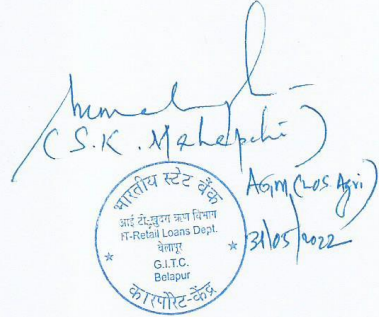 (S.K. Mahapchi)
AGM (LOS Agri)
31/05/2022
भारतीय स्टेट बैंक
आई टी-खुदरा ऋण विभाग
IT-Retail Loans Dept.
बेलापुर
G.I.T.C.
Belapur
कारपोरेट-केंद्र